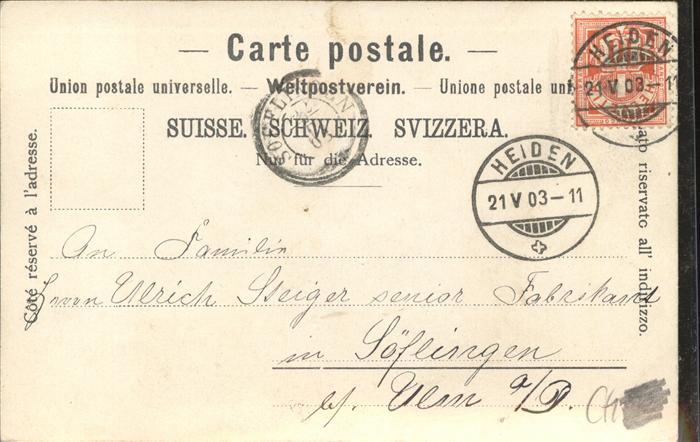 Carte postale.
Union postale universelle. — Weltpostverein. — Unione postale uni
SUISSE. SCHWEIZ. SVIZZERA.
Nur für die Adresse.
Côté réservé à l'adresse.
ato riservato all' indirizzo.
HEIDEN
21 V 03–11
HEIDEN
21 V 03–11
An Familie
Herrn Ulrich Steiger senior Fabrikant
in Söflingen
bf. Ulm a/D.